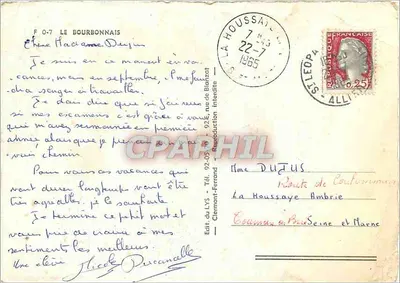 F 0-7 LE BOURBONNAIS
Chère Madame
Je suis en ce moment en va-
cances, mais en septembre, il me fau-
dra songer à travailler.
Je dois dire que si j'ai réussi
mes examens c'est grâce à vous
qui m'avez en première
année, alors que je
vrai chemin.
Pour vous les vacances qui
vont durer longtemps vont être
très agréables, je le souhaite.
Je termine ce petit mot et
vous prie de croire à mes
sentiments les meilleurs.
Une élève Nicole
Edit. du LYS - Tél. 92-05
rue de Blanzat
Clermont-Ferrand - Reproduction Interdite
LA HOUSSAYE
22-7
1965
ST LEOP
ALLIER
FRANCAISE
0,25
CPARHIL
Mme DUTUS
Route de
La Houssaye Ambrie
Seine et Marne